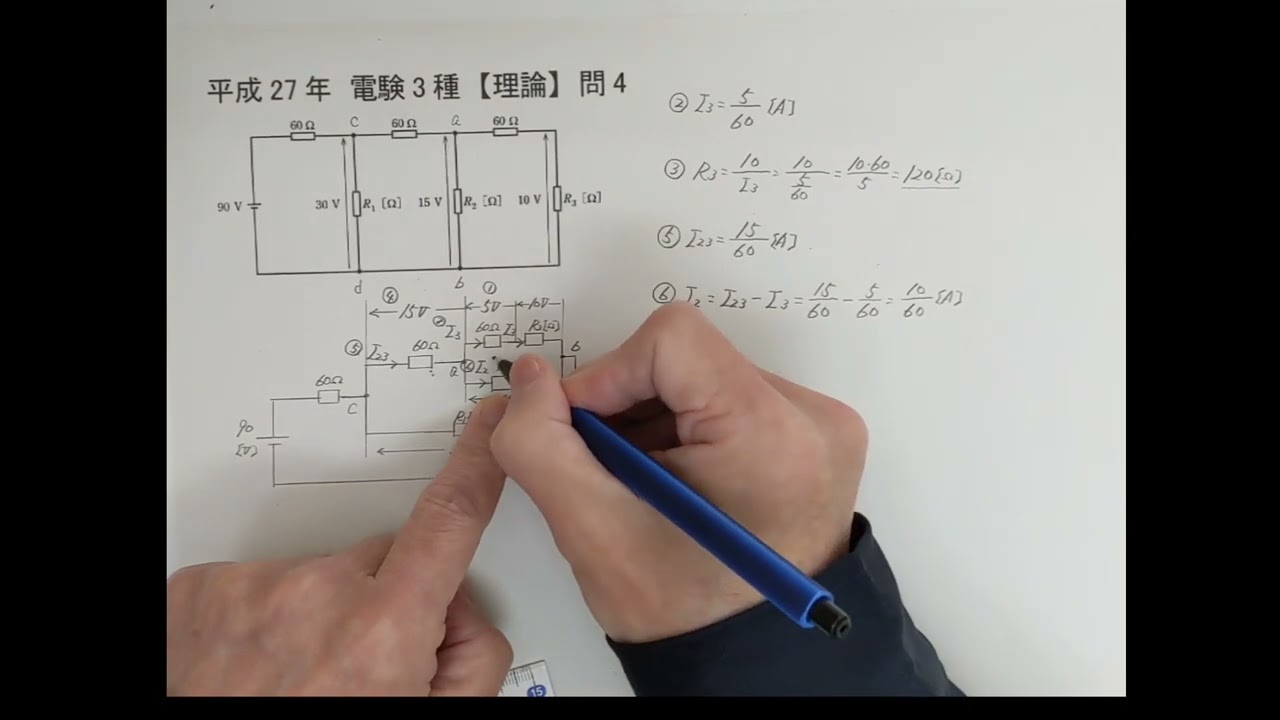 平成 27 年 電験 3 種 【理論】 問 4
60 Ω C 60 Ω a 60 Ω
90 V 30 V R₁ [Ω] 15 V R₂ [Ω] 10 V R₃ [Ω]
d b
④ ①
15V 5V 10V
② I₃ 60Ω I₃ R₃[Ω]
⑤ I₂₃ 60Ω a ⑥ I₂ b
60Ω
C
90
[V]
② I₃ = 5/60 [A]
③ R₃ = 10/I₃ = 10/(5/60) = 10·60/5 = 120[Ω]
⑤ I₂₃ = 15/60 [A]
⑥ I₂ = I₂₃ - I₃ = 15/60 - 5/60 = 10/60 [A]
15